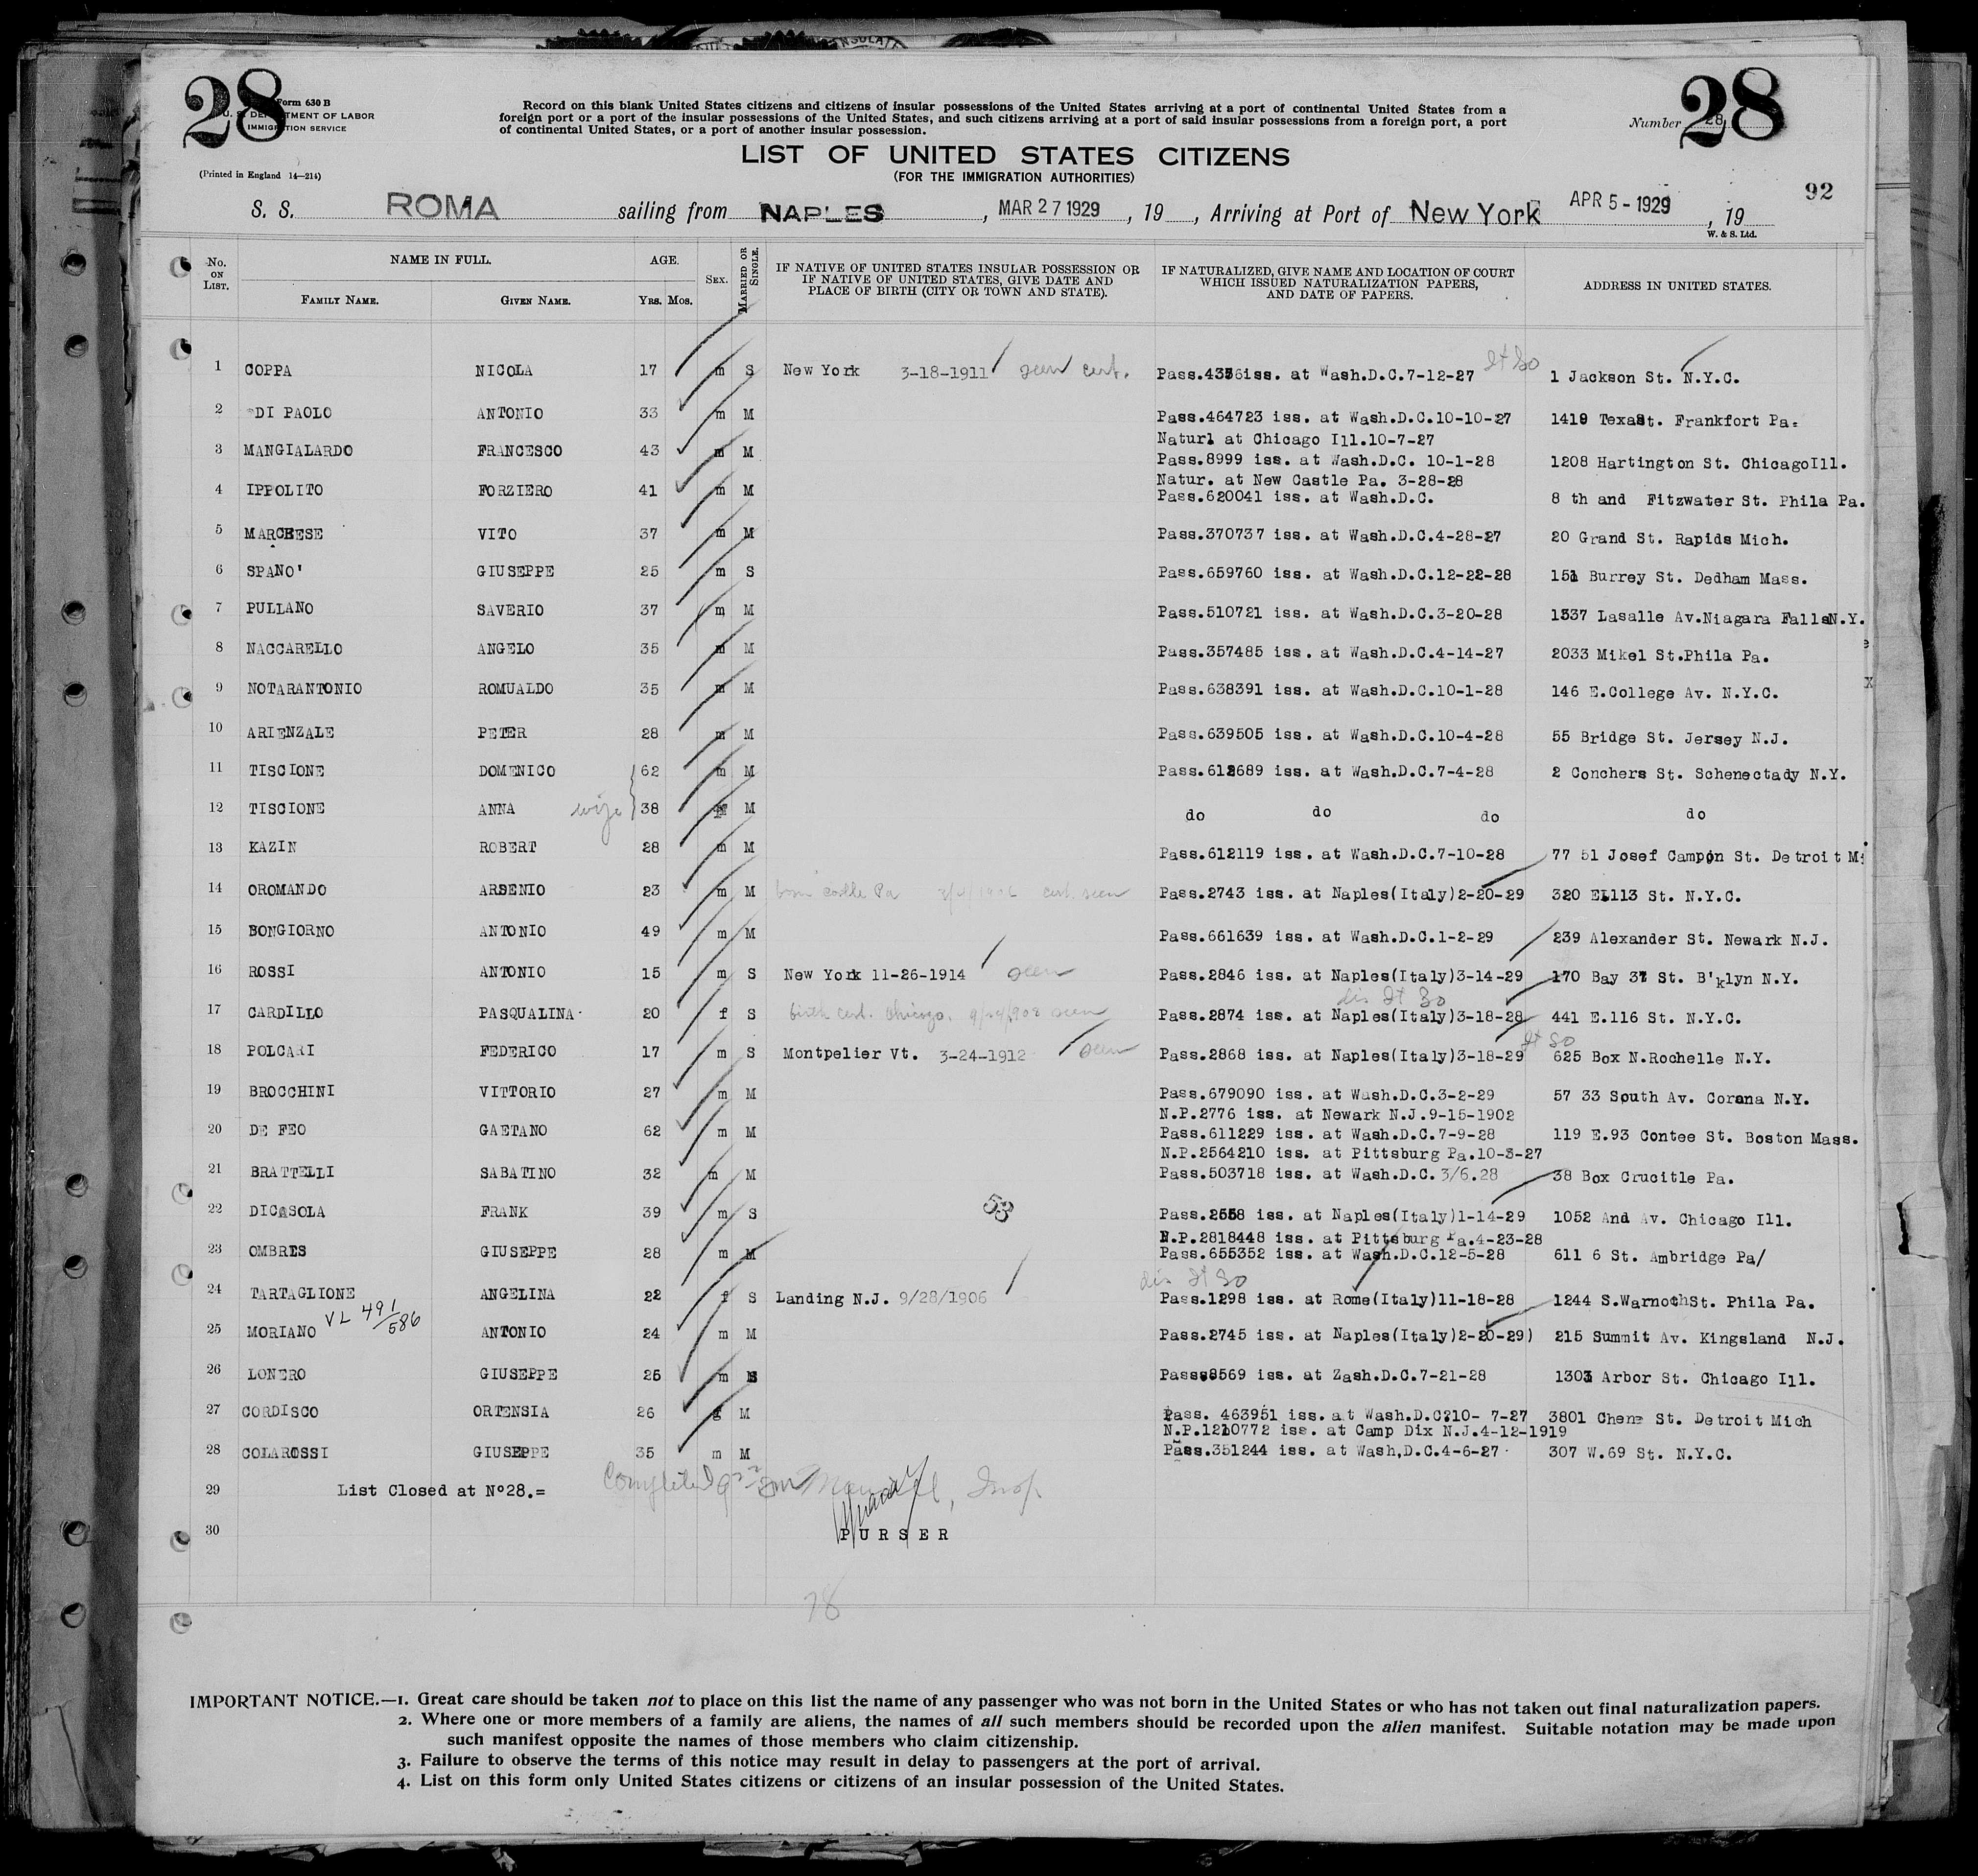 28
Form 630 B
U. S. DEPARTMENT OF LABOR
IMMIGRATION SERVICE
(Printed in England 14—214)
Record on this blank United States citizens and citizens of insular possessions of the United States arriving at a port of continental United States from a
foreign port or a port of the insular possessions of the United States, and such citizens arriving at a port of said insular possessions from a foreign port, a port
of continental United States, or a port of another insular possession.
Number 28
28
LIST OF UNITED STATES CITIZENS
(FOR THE IMMIGRATION AUTHORITIES)
92
S. S. ROMA sailing from NAPLES, MAR 27 1929, 19 , Arriving at Port of New York APR 5 - 1929, 19
W. & S. Ltd.
No. ON LIST. NAME IN FULL. FAMILY NAME. GIVEN NAME. AGE. YRS. MOS. SEX. MARRIED OR SINGLE. IF NATIVE OF UNITED STATES INSULAR POSSESSION OR IF NATIVE OF UNITED STATES, GIVE DATE AND PLACE OF BIRTH (CITY OR TOWN AND STATE). IF NATURALIZED, GIVE NAME AND LOCATION OF COURT WHICH ISSUED NATURALIZATION PAPERS, AND DATE OF PAPERS. ADDRESS IN UNITED STATES.
1 COPPA NICOLA 17 m S New York 3-18-1911 seen cert. iss. at Wash.D.C.7-12-27 1 Jackson St. N.Y.C.
2 DI PAOLO ANTONIO 33 m M Pass.464723 iss. at Wash.D.C.10-10-27 1419 Texast. Frankfort Pa.
Naturl at Chicago Ill.10-7-27
3 MANGIALARDO FRANCESCO 43 m M Pass.8999 iss. at Wash.D.C. 10-1-28 1208 Hartington St. ChicagoIll.
Natur. at New Castle Pa. 3-28-28
4 IPPOLITO FORZIERO 41 m M Pass.620041 iss. at Wash.D.C. 8 th and Fitzwater St. Phila Pa.
5 MARCHESE VITO 37 m M Pass.370737 iss. at Wash.D.C.4-28-27 20 Grand St. Rapids Mich.
6 SPANO' GIUSEPPE 25 m S Pass.659760 iss. at Wash.D.C.12-22-28 151 Burrey St. Dedham Mass.
7 PULLANO SAVERIO 37 m M Pass.510721 iss. at Wash.D.C.3-20-28 1337 Lasalle Av.Niagara FallsN.Y.
8 NACCARELLO ANGELO 35 m M Pass.357485 iss. at Wash.D.C.4-14-27 2033 Mikel St.Phila Pa.
9 NOTARANTONIO ROMUALDO 35 m M Pass.638391 iss. at Wash.D.C.10-1-28 146 E.College Av. N.Y.C.
10 ARIENZALE PETER 28 m M Pass.639505 iss. at Wash.D.C.10-4-28 55 Bridge St. Jersey N.J.
11 TISCIONE DOMENICO 62 m M Pass.612689 iss. at Wash.D.C.7-4-28 2 Conchers St. Schenectady N.Y.
12 TISCIONE ANNA wife 38 M do do do do
13 KAZIN ROBERT 28 m M Pass.612119 iss. at Wash.D.C.7-10-28 77 51 Josef Campon St. Detroit Mi
14 OROMANDO ARSENIO 23 m M born castle Pa cert. seen Pass.2743 iss. at Naples(Italy)2-20-29 320 E.113 St. N.Y.C.
15 BONGIORNO ANTONIO 49 m M Pass.661639 iss. at Wash.D.C.1-2-29 239 Alexander St. Newark N.J.
16 ROSSI ANTONIO 15 m S New York 11-26-1914 seen Pass.2846 iss. at Naples(Italy)3-14-29 170 Bay 37 St. B'klyn N.Y.
17 CARDILLO PASQUALINA 20 f S birth cert. Chicago, 9/24/908 seen Pass.2874 iss. at Naples(Italy)3-18-28 441 E.116 St. N.Y.C.
18 POLCARI FEDERICO 17 m S Montpelier Vt. 3-24-1912 seen Pass.2868 iss. at Naples(Italy)3-18-29 625 Box N.Rochelle N.Y.
19 BROCCHINI VITTORIO 27 m M Pass.679090 iss. at Wash.D.C.3-2-29 57 33 South Av. Corona N.Y.
N.P.2776 iss. at Newark N.J.9-15-1902
20 DE FEO GAETANO 62 m M Pass.611229 iss. at Wash.D.C.7-9-28 119 E.93 Contee St. Boston Mass.
N.P.2564210 iss. at Pittsburg Pa.10-3-27
21 BRATTELLI SABATINO 32 m M Pass.503718 iss. at Wash.D.C. 3/6.28 38 Box Crucitle Pa.
53
22 DICASOLA FRANK 39 m S Pass.2558 iss. at Naples(Italy)1-14-29 1052 And Av. Chicago Ill.
N.P.2818448 iss. at Pittsburg Pa.4-23-28
23 OMBRES GIUSEPPE 28 m M Pass.655352 iss. at Wash.D.C.12-5-28 611 6 St. Ambridge Pa/
24 TARTAGLIONE ANGELINA 22 f S Landing N.J. 9/28/1906 Pass.1298 iss. at Rome(Italy)11-18-28 1244 S.WarnothSt. Phila Pa.
VL 491/586
25 MORIANO ANTONIO 24 m M Pass.2745 iss. at Naples(Italy)2-20-29) 215 Summit Av. Kingsland N.J.
26 LONERO GIUSEPPE 25 m Pass.8569 iss. at Zash.D.C.7-21-28 1303 Arbor St. Chicago Ill.
27 CORDISCO ORTENSIA 26 M Pass. 463951 iss. at Wash.D.C.10- 7-27 3801 Chene St. Detroit Mich
N.P.1210772 iss. at Camp Dix N.J.4-12-1919
28 COLAROSSI GIUSEPPE 35 m M Pass.351244 iss. at Wash,D.C.4-6-27 307 W.69 St. N.Y.C.
29 List Closed at N°28.= Completed Insp.
30 PURSER
28
IMPORTANT NOTICE.—1. Great care should be taken not to place on this list the name of any passenger who was not born in the United States or who has not taken out final naturalization papers.
2. Where one or more members of a family are aliens, the names of all such members should be recorded upon the alien manifest. Suitable notation may be made upon
such manifest opposite the names of those members who claim citizenship.
3. Failure to observe the terms of this notice may result in delay to passengers at the port of arrival.
4. List on this form only United States citizens or citizens of an insular possession of the United States.